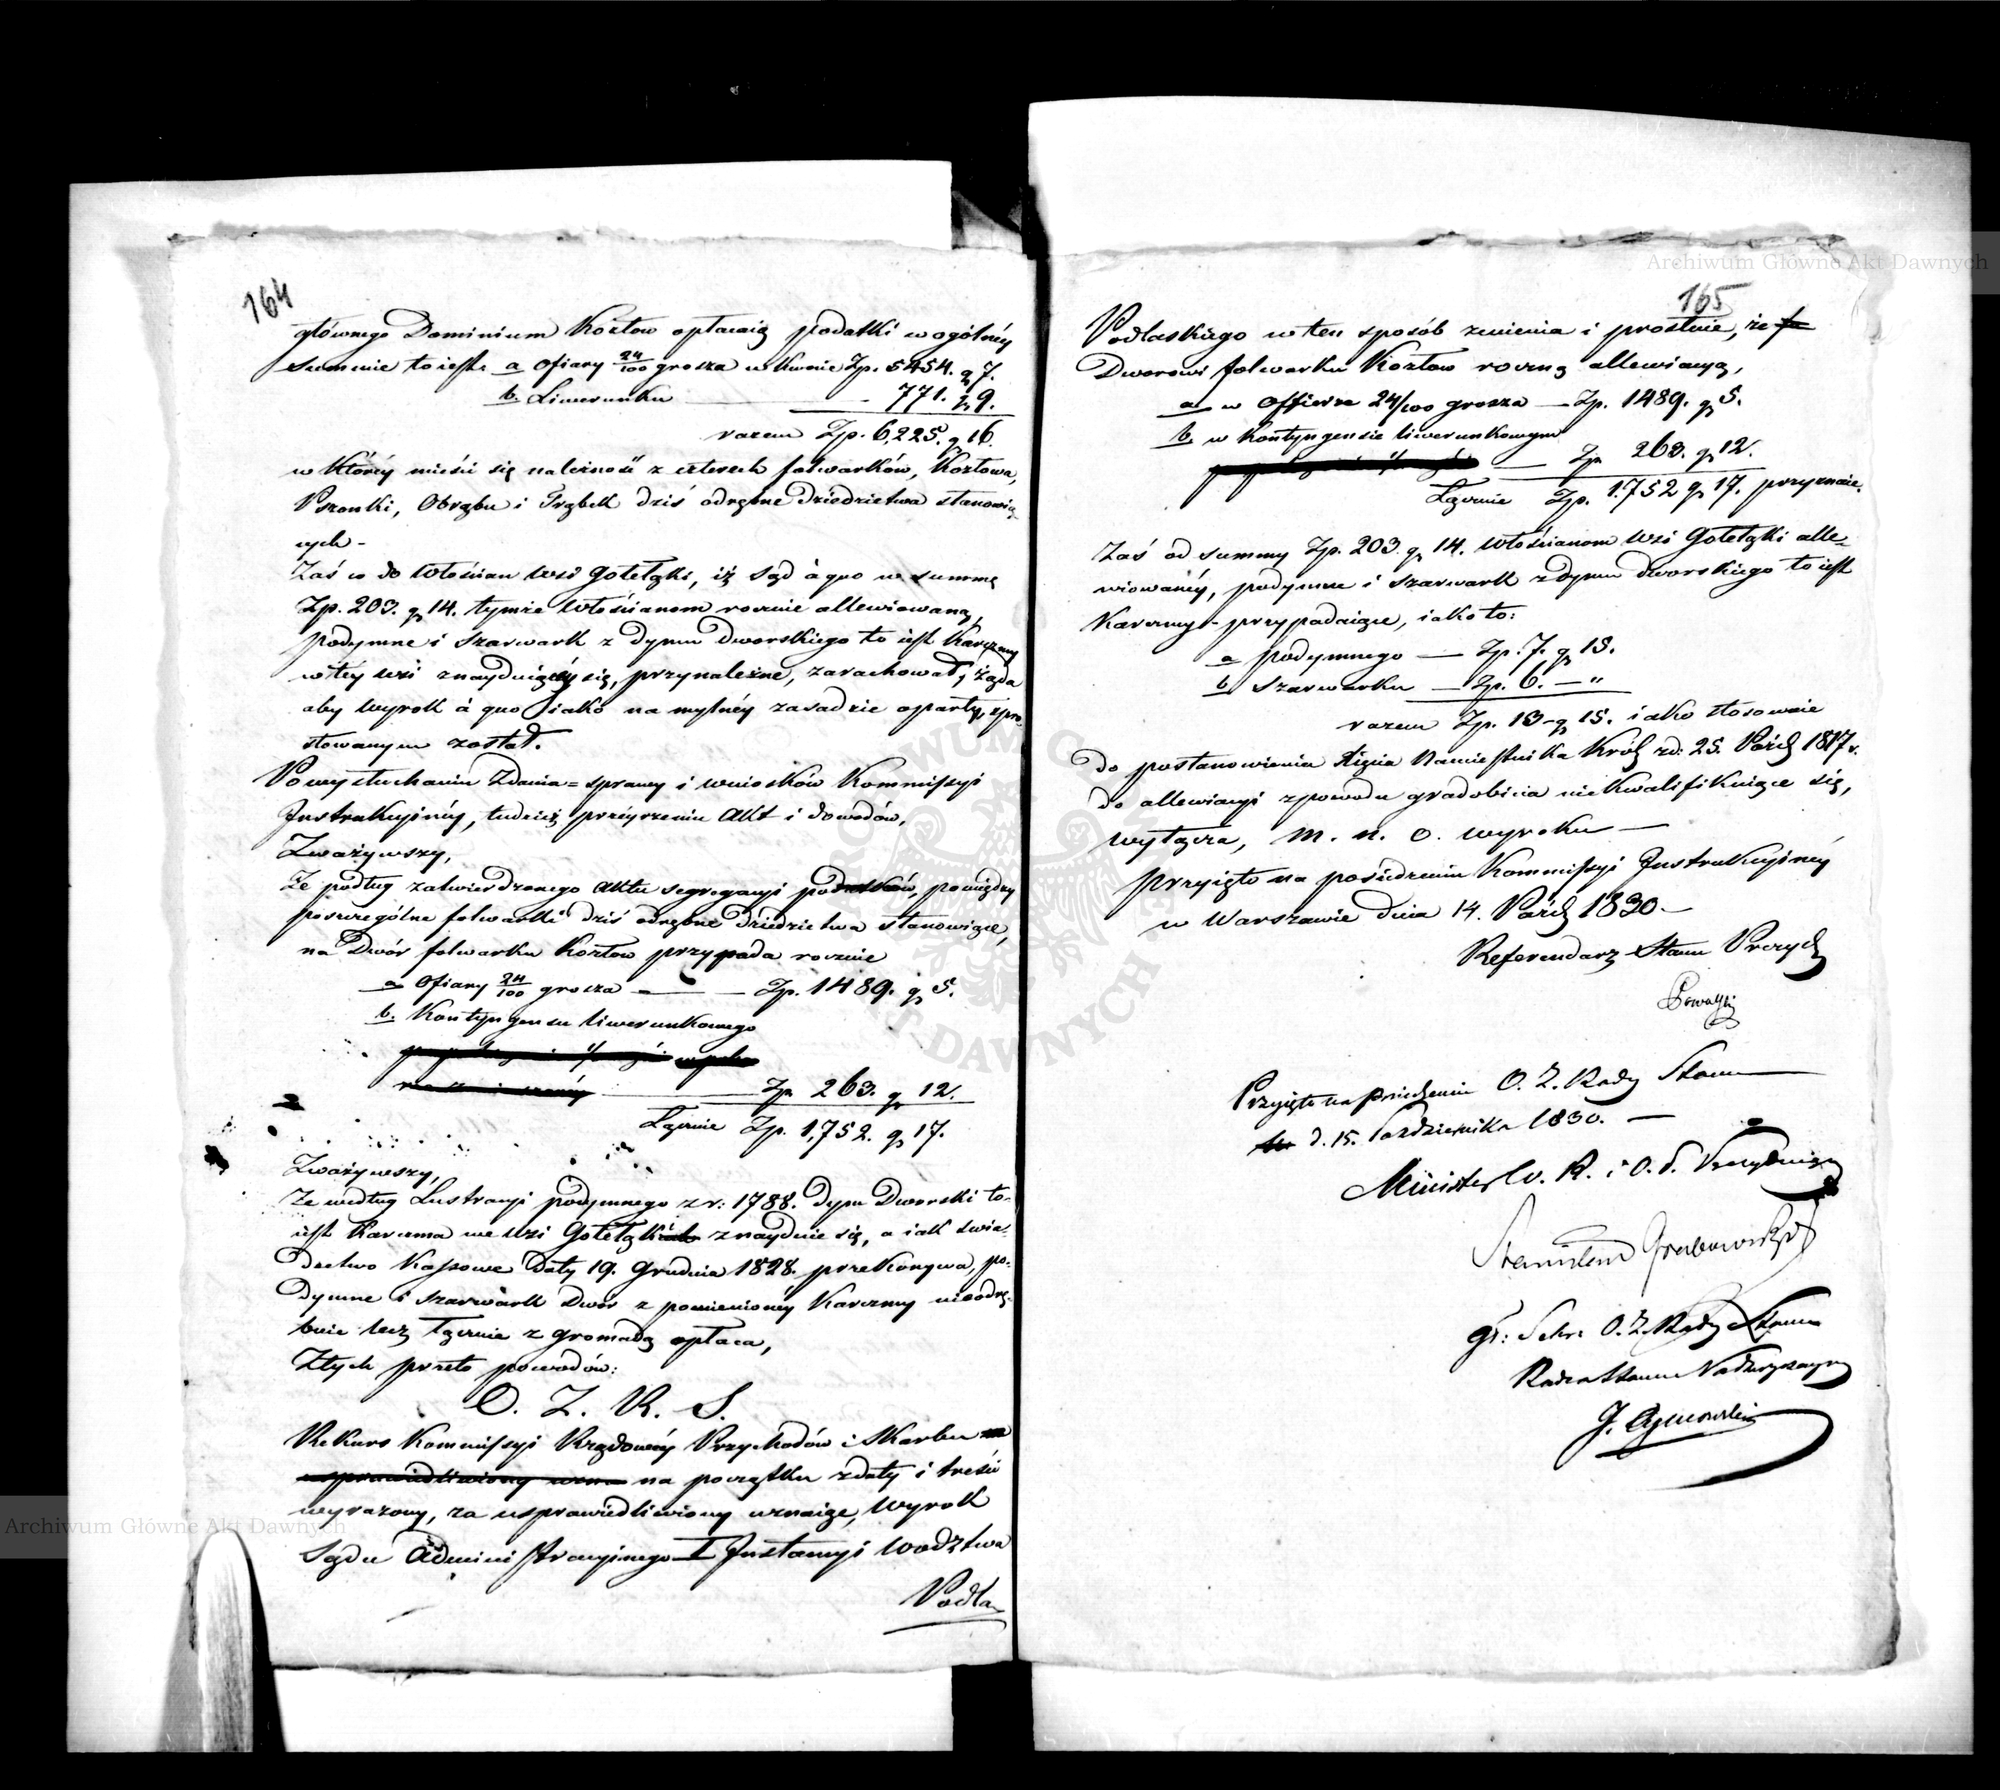 164
głównego Dominium Kozłow opłacaią podatki w ogólnéy
Summie to iest. a Ofiary 24/100 grosza w kwocie Zp. 5454. g 7.
b. Liwerunku — 771. g 9.
razem Zp. 6,225. g 16.
w któréy mieści się należność z czterech folwarków, Kozłowa,
Pszonki, Obrąbu i Trąbek dziś odrębne dziedzictwa stanowią-
cych -
Zaś co do Włościan wsi Gołełąki, iż Sąd à quo w summę
Zp. 203. g 14. tymże Włościanom rocznie allewiowaną,
podymne i szarwark z dymu dworskiego to iest Karczmy
w téy wsi znayduiącéy się, przynależne, zarachował, żąda
aby Wyrok à quo iako na mylnéy zasadzie oparty, spro-
stowanym został.
Po wysłuchaniu Zdania = sprawy i wniosków Kommissyi
Instrukcyinéy, tudzież przéyrzeniu Akt i dowodów,
Zważywszy,
Że podług zatwierdzonego Aktu segregacyi podatków, pomiędzy
poszczególne folwarki dziś odrębne dziedzictwa stanowiące,
na Dwór folwarku Kozłow przypada rocznie
a Ofiary 24/100 grosza — Zp. 1489. g 5.
b. Kontyngensu liwerunkowego
Zp 263. g 12.
Łącznie Zp. 1,752. g 17.
Zważywszy,
Że według Lustracyi podymnego z r: 1788. dym Dworski to-
iest Karczma we wsi Gołełąki znayduie się, a iak świa-
dectwo Kassowe daty 19. Grudnia 1828. przekonywa, po-
dymne i szarwark Dwór z pomienionéy Karczmy nieodrę-
bnie lecz łącznie z gromadą opłaca,
Z tych przeto powodów:
O. Z. R. S.
Rekurs Kommissyi Rządowéy Przychodów i Skarbu
na początku z daty i treści
wyrażony, za usprawiedliwiony uznaiąc, Wyrok
Sądu Administracyinego I Instancyi Wodztwa
Podla
165
Podlaskiego w ten sposób zmienia i prostuie, że
Dworowi folwarku Kozłow roczną allewiacyą,
a w Offierze 24/100 grosza — Zp. 1489. g 5.
b w Kontyngensie liwerunkowym
— Zp 263. g 12.
Łącznie Zp. 1,752 g 17. przyznaie.
Zaś od summy Zp. 203. g 14. Włościanom wsi Gołełąki alle-
wiowanéy, podymne i szarwark z dymu dworskiego to iest
Karczmy - przypadaiące, iako to:
a podymnego — Zp. 7. g 15.
b szarwarku — Zp. 6. — "
razem Zp. 13 - g 15. iako stosownie
do postanowienia Xięcia Namiestnika Król. z d: 25. Paźdz 1817 r.
do allewiacyi z powodu gradobicia niekwalifikuiące się,
wyłącza, m. n. o. wyroku —
Przyięto na posiedzeniu Kommissyi Instrukcyinéy
w Warszawie dnia 14. Paźdz 1830 —
Referendarz Stanu Prezyd

Przyięto na posiedzeniu O. Z. Rady Stanu —
d. 15. Października 1830. —
Minister W. R. i O. P. Prezyduiący
Stanisław Grabowski
gł: Sekr O. Z. Rady Stanu
Radca Stanu Nadzwyczayny
Archiwum Główne Akt Dawnych
Archiwum Główne Akt Dawnych
ARCHIWUM GŁÓWNE AKT DAWNYCH